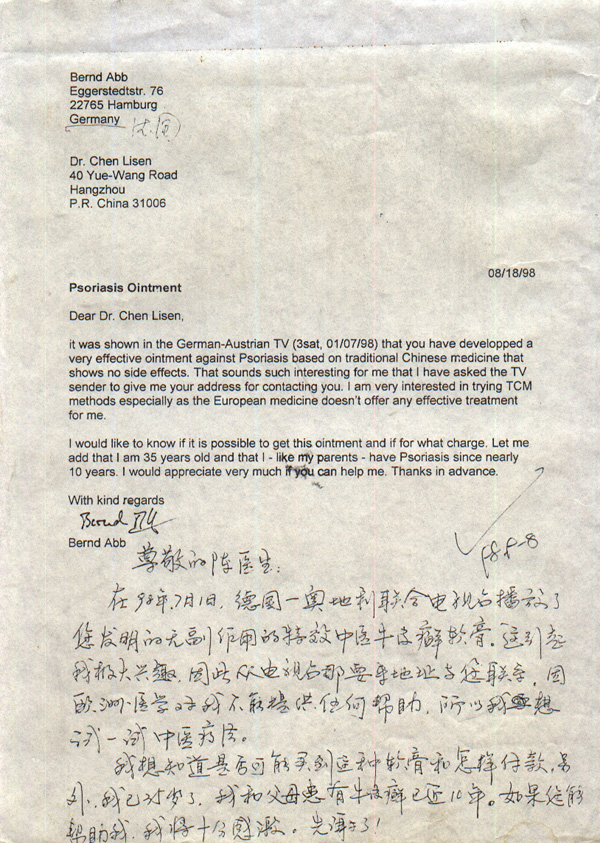 Bernd Abb
Eggerstedtstr. 76
22765 Hamburg
Germany
Dr. Chen Lisen
40 Yue-Wang Road
Hangzhou
P.R. China 31006
08/18/98
Psoriasis Ointment
Dear Dr. Chen Lisen,
it was shown in the German-Austrian TV (3sat, 01/07/98) that you have developped a
very effective ointment against Psoriasis based on traditional Chinese medicine that
shows no side effects. That sounds such interesting for me that I have asked the TV
sender to give me your address for contacting you. I am very interested in trying TCM
methods especially as the European medicine doesn't offer any effective treatment
for me.
I would like to know if it is possible to get this ointment and if for what charge. Let me
add that I am 35 years old and that I - like my parents - have Psoriasis since nearly
10 years. I would appreciate very much if you can help me. Thanks in advance.
With kind regards
Bernd Abb
Bernd Abb
尊敬的陈医生:
在98年7月1日,德国一奥地利联合电视台播放了
您发明的无副作用的特效中医牛皮癣软膏。这引起
我极大兴趣,因此从电视台那要来地址与您联系,因
欧洲医学对我不能提供任何帮助,所以我想
试一试中医疗法。
我想知道是否可能买到这种软膏和怎样付款,另
外,我已35岁了,我和父母患有牛皮癣已近10年。如果您能
帮助我,我将十分感激。先谢了!